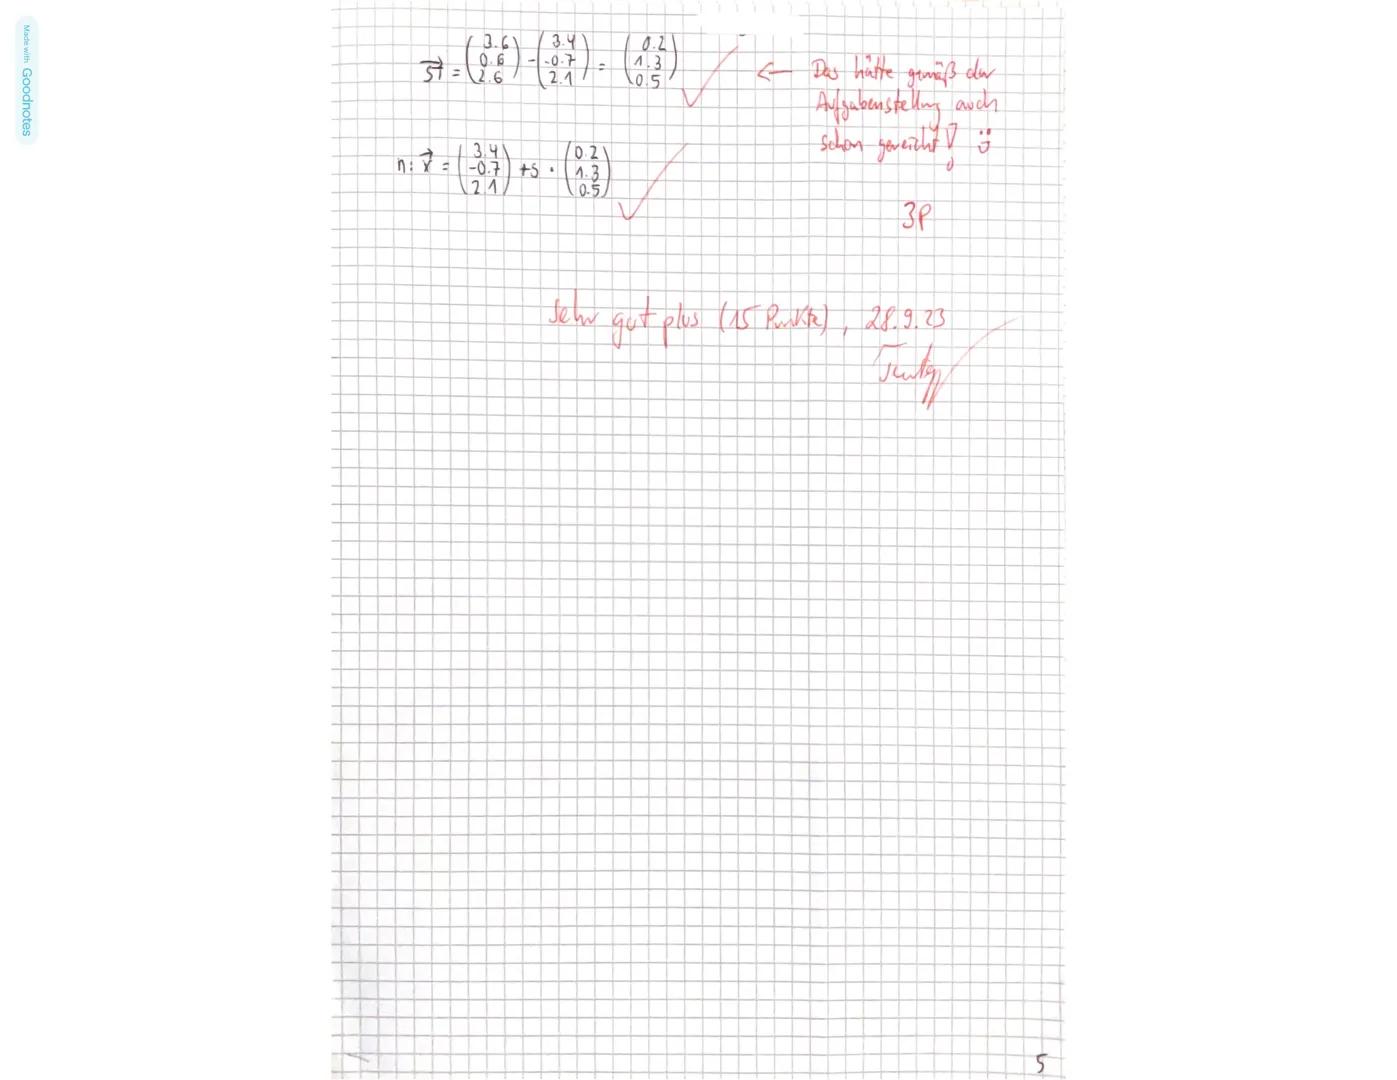 Made with Goodnotes
ST = (3.6 0.6 2.6) - (3.4 -0.7 2.1) = (0.2 1.3 0.5)
← Das hätte gemäß der
Aufgabenstellung auch
schon gereicht!
n: x = (3.4 -0.7 2.1) + s · (0.2 1.3 0.5)
3P
sehr gut plus (15 Punkte), 28.9.23
5